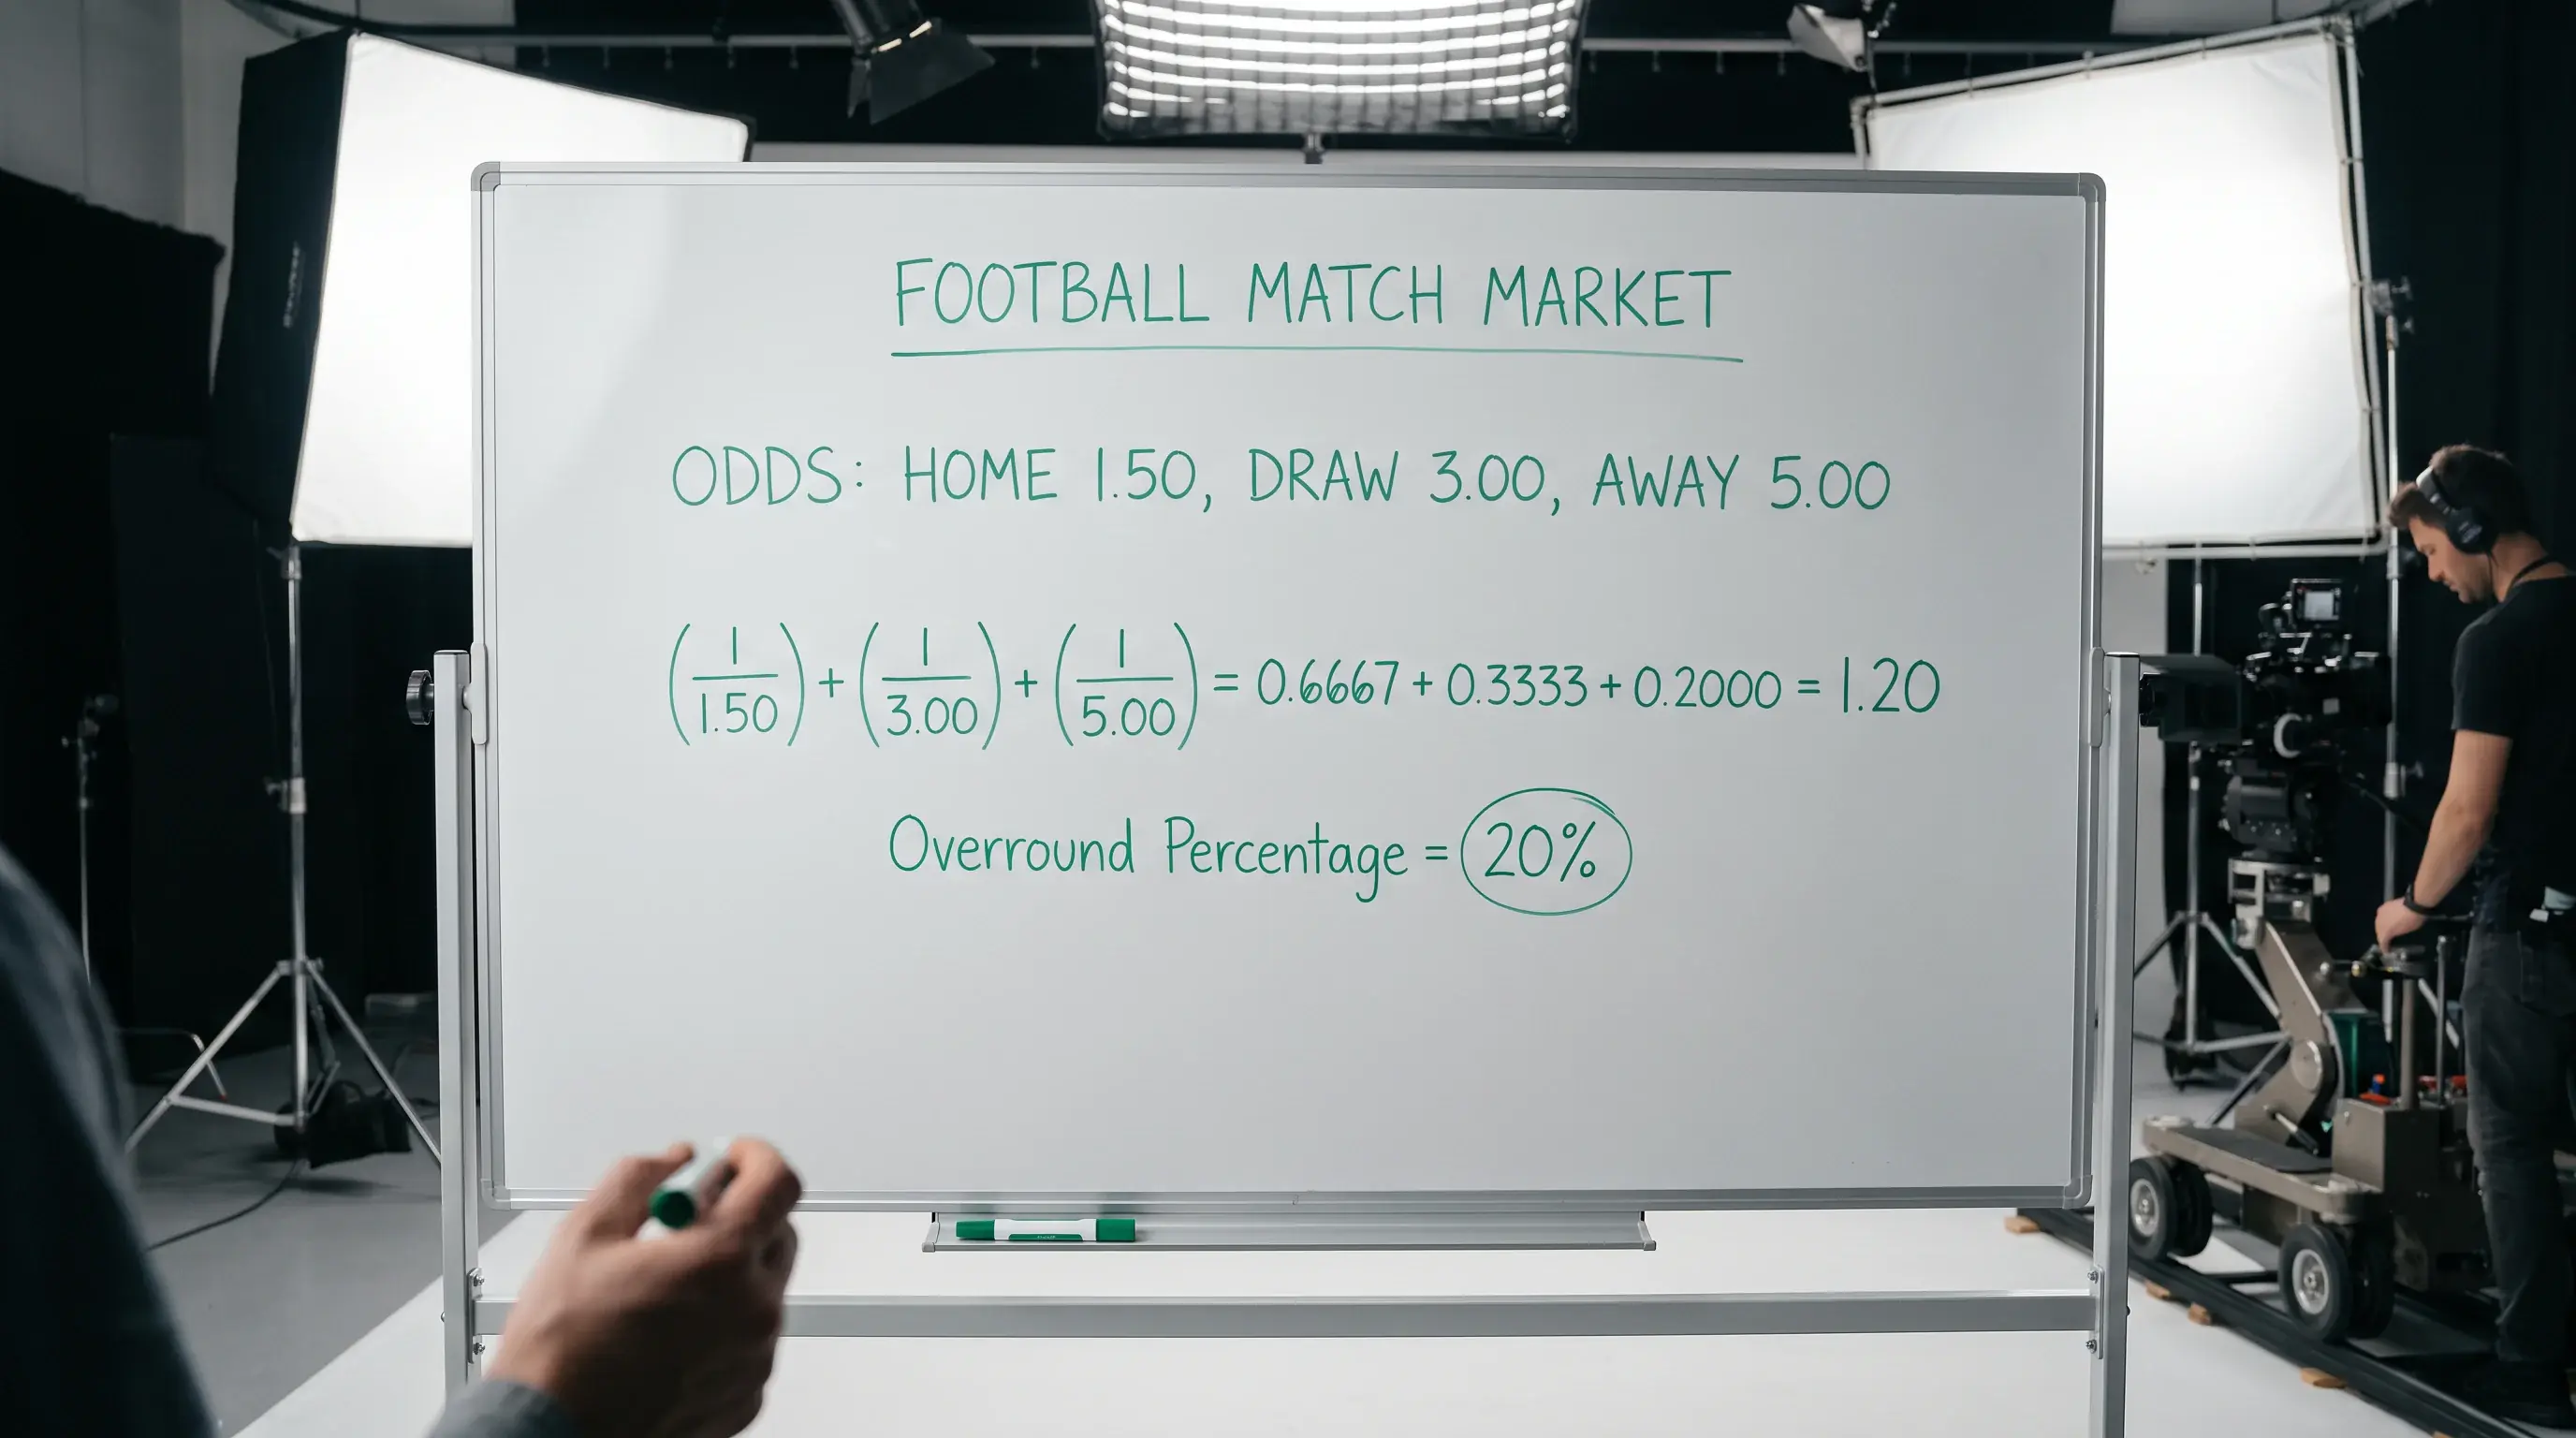 FOOTBALL MATCH MARKET
ODDS: HOME 1.50, DRAW 3.00, AWAY 5.00
(1/1.50) + (1/3.00) + (1/5.00) = 0.6667 + 0.3333 + 0.2000 = 1.20
Overround Percentage = 20%